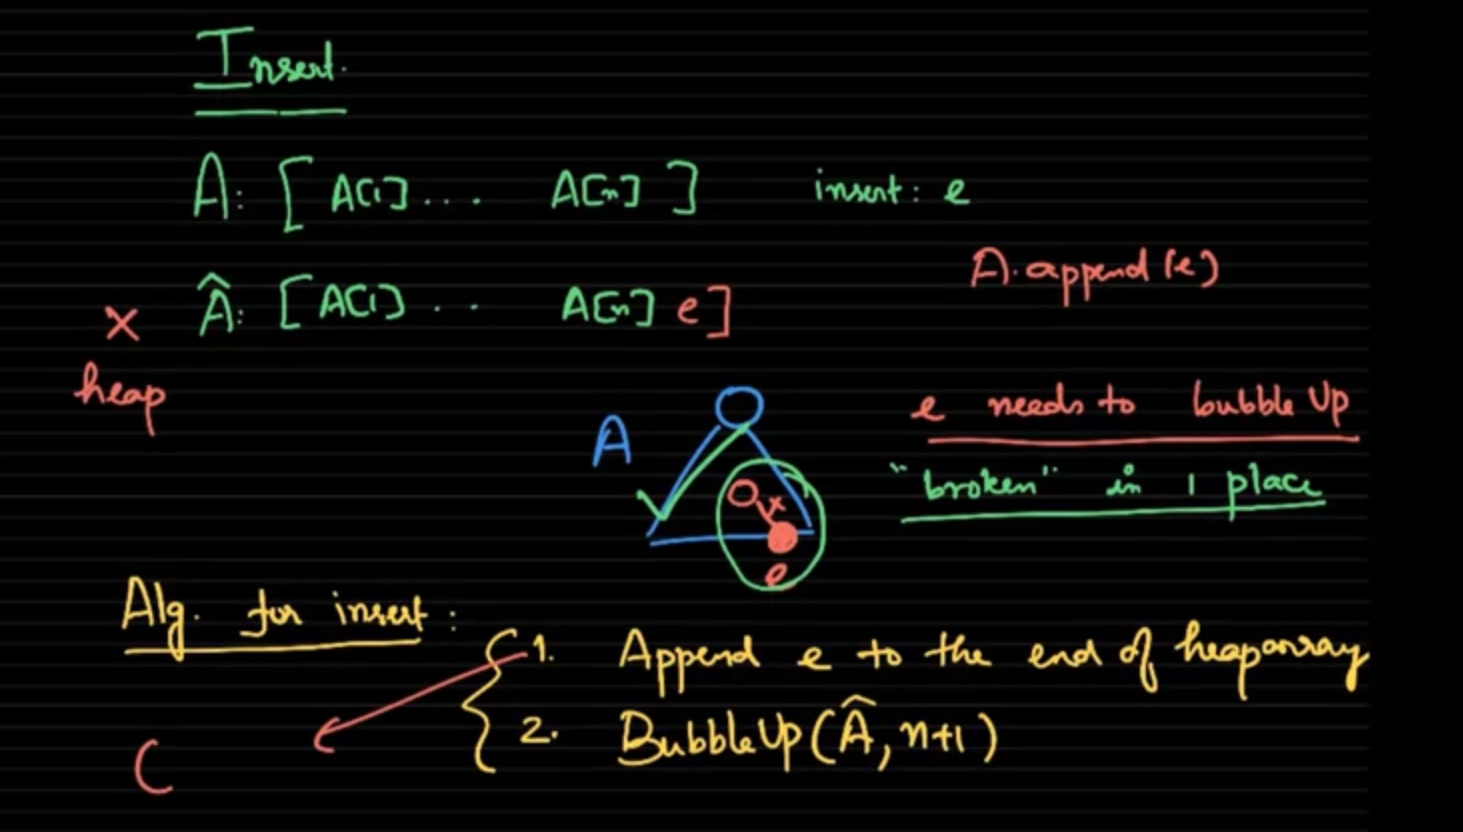 Insert.
A: [ A[1] ... A[n] ] insert: e
A.append(e)
Â: [ A[1] .. A[n] e ]
x
heap
A
e needs to bubble Up
"broken" in 1 place
x
e
Alg. for insert:
1. Append e to the end of heaparray
2. BubbleUp(Â, n+1)
C